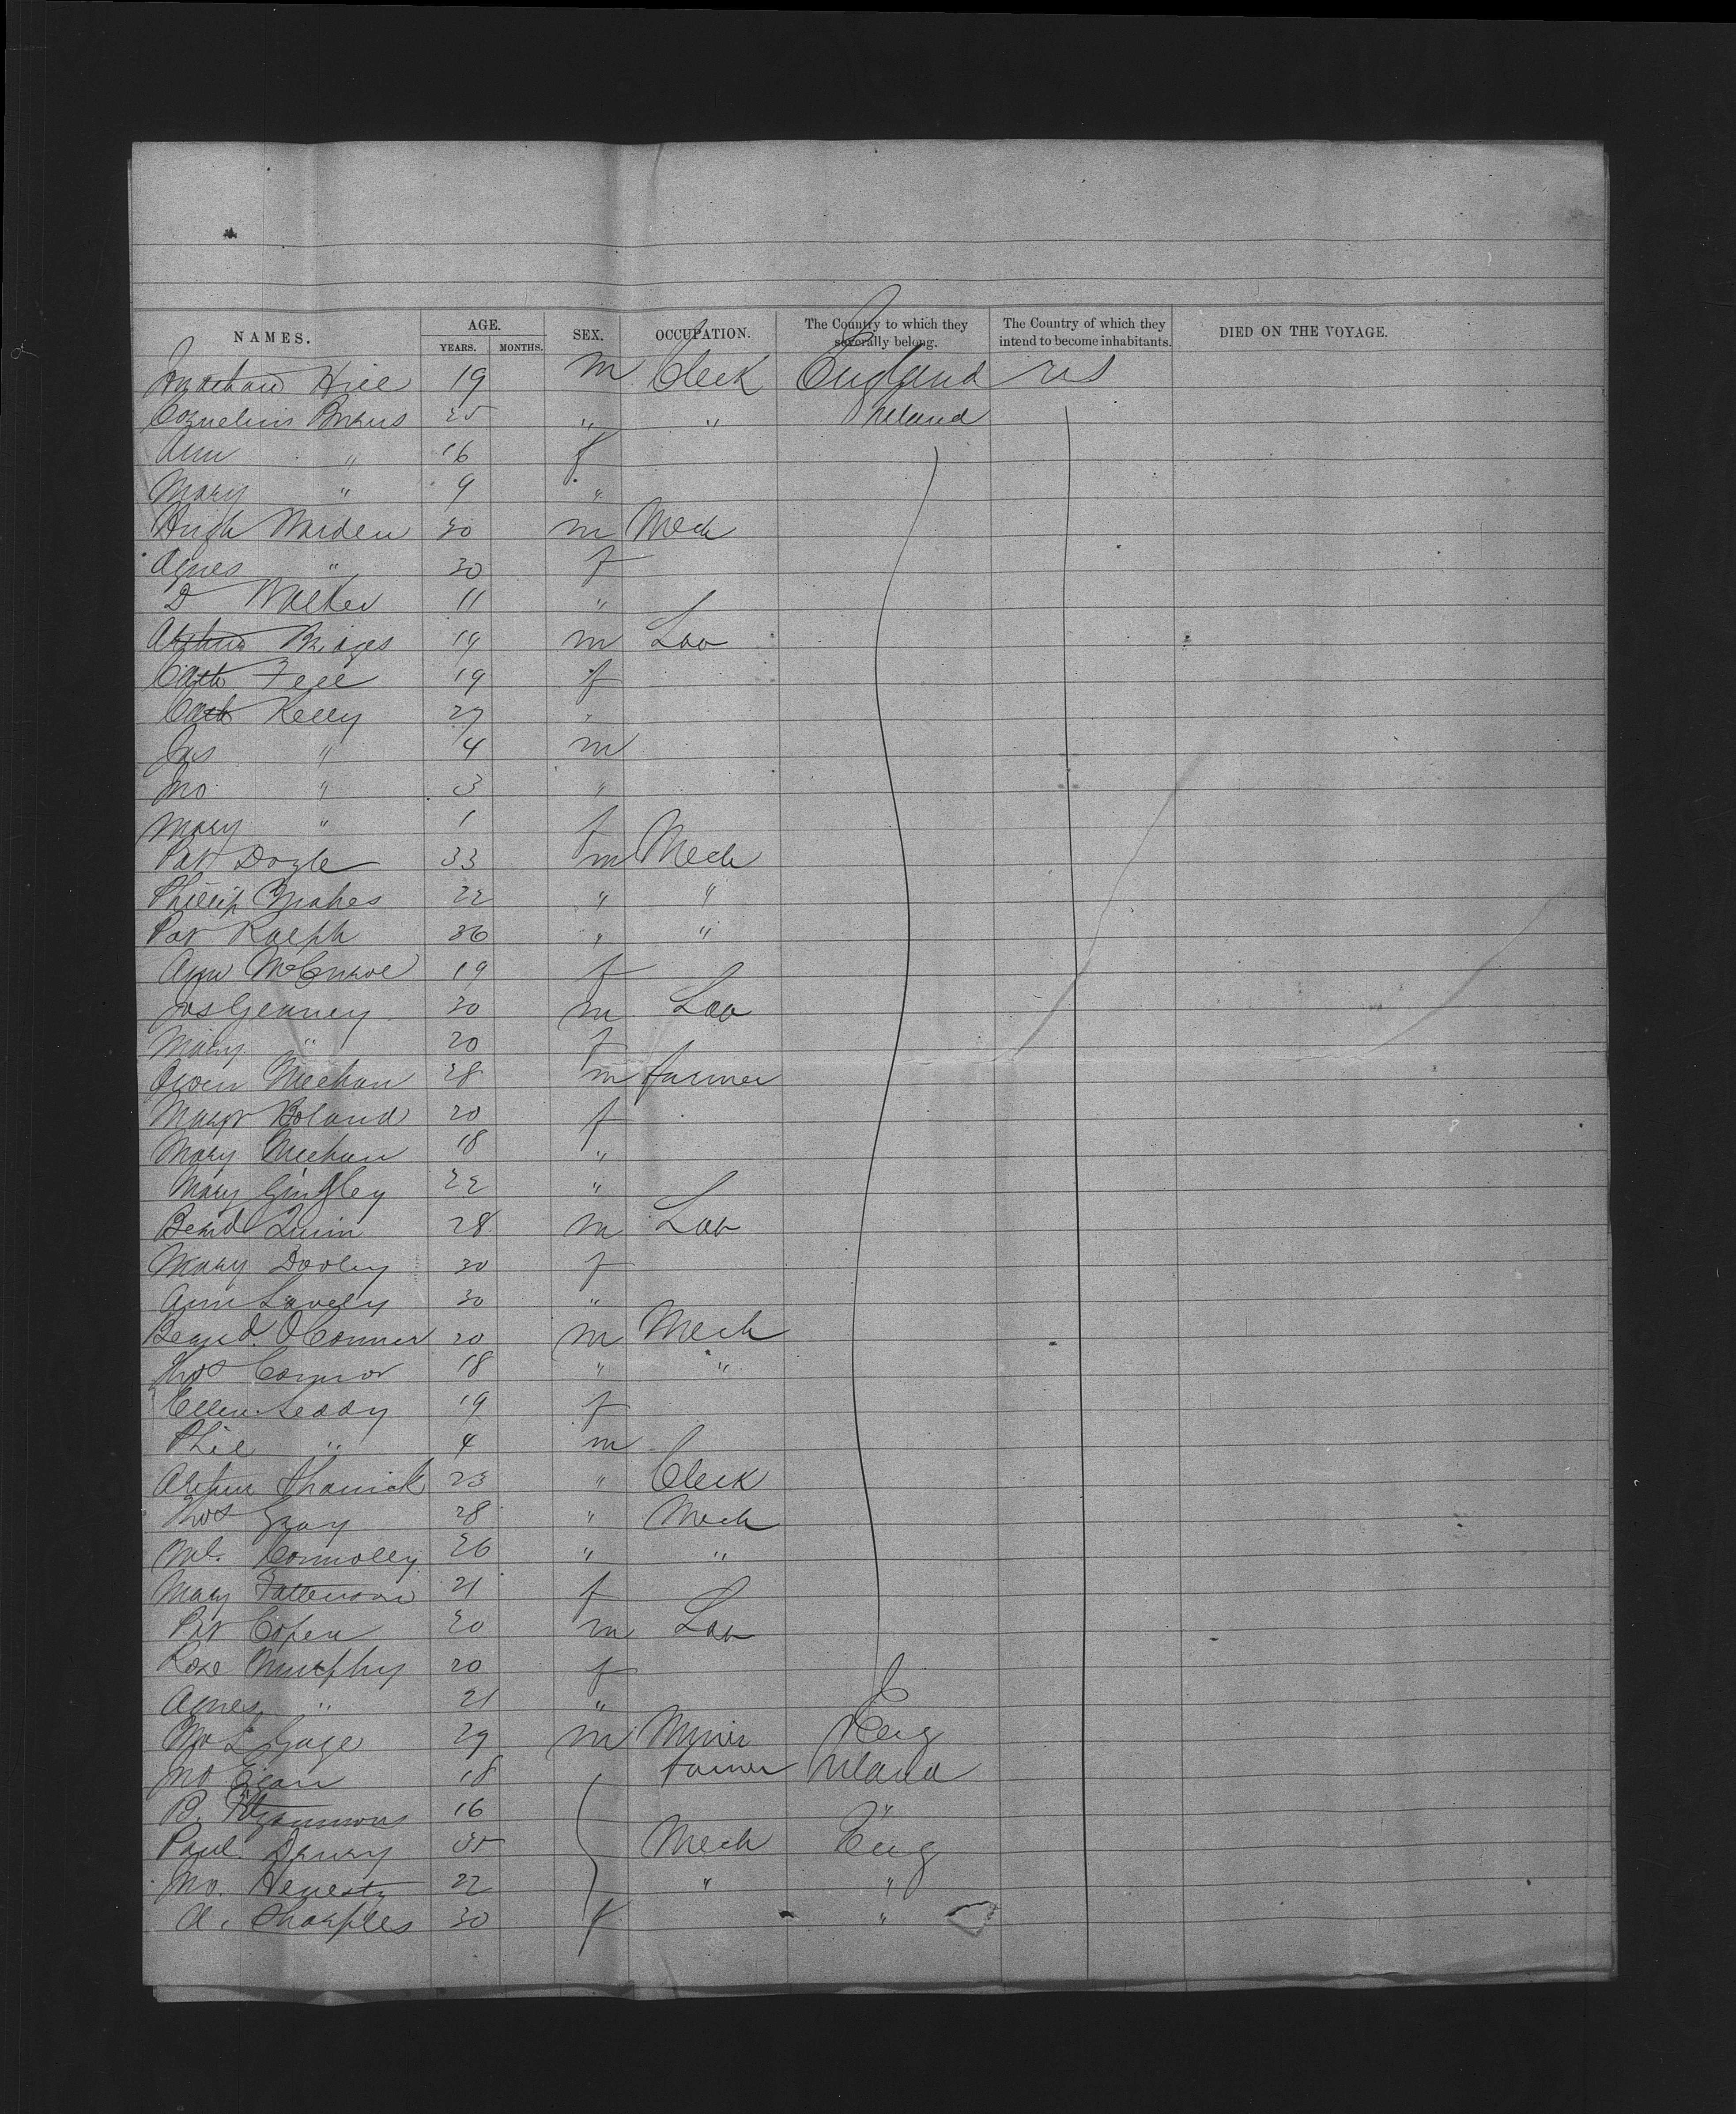 NAMES. AGE. YEARS. MONTHS. SEX. OCCUPATION. The Country to which they severally belong. The Country of which they intend to become inhabitants. DIED ON THE VOYAGE.
Jonathan Hill 19 m Clerk England US
Cornelius 25 " " Ireland
Ann " 16 f
Mary " 9 "
Hugh Warden 30 m Mech
Agnes " 30 f
D Walker 11 "
Arthur Bridges 19 m Lab
Cath Fell 19 f
Cath Kelly 27 "
Jas " 4 m
Jno " 3 "
Mary " 1 f
Pat Doyle 33 m Mech
Phillip 22 " "
Pat Ralph 36 " "
Ann McEnroe 19 f
Jas Geaney 30 m Lab
Mary " 20 f
Owen Meehan 28 m farmer
Margt Boland 20 f
Mary Meehan 18 "
Mary 22 "
Bernd Quinn 28 m Lab
Mary Dooley 30 f
Ann Lavely 30 "
Bernd. OConner 20 m Mech
Thos Connor 18 " "
Ellen Leddy 19 f
Phil " 4 m
Arthur 23 " Clerk
Thos Gray 28 " Mech
Ml. Connolly 26 " "
Mary Patterson 21 f
Pat 20 m Lab
Rose Murphy 20 f
Agnes " 21 "
Gage 29 m Miner Eng
Jno Egan 18 farmer Ireland
B. Fitzsimmons 16 "
Paul Drury 35 Mech Eng
Jno. 22 " "
A. Sharples 30 f "